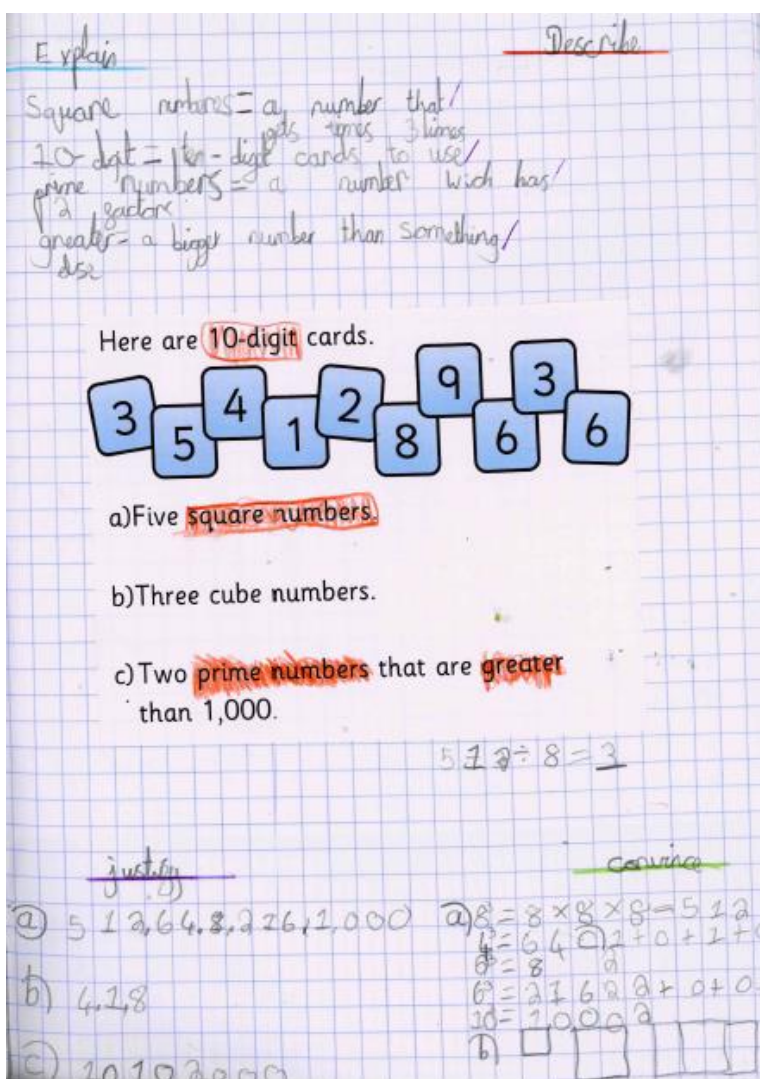 Explain
Describe
Square numbres = a number that/
gets times 3 times
10-digt = ten-digit cards to use/
prime numbers = a number wich has/
2 factors
greater = a bigger number than something/
else
Here are 10-digit cards.
3 5 4 1 2 8 9 6 3 6
a)Five square numbers.
b)Three cube numbers.
c)Two prime numbers that are greater
than 1,000.
512÷8=3
justify
convince
a) 512,64,8,216,1,000
a) 8³=8×8×8=512
4³=64
=8
b) 4,1,8
6³=216
b)
c)